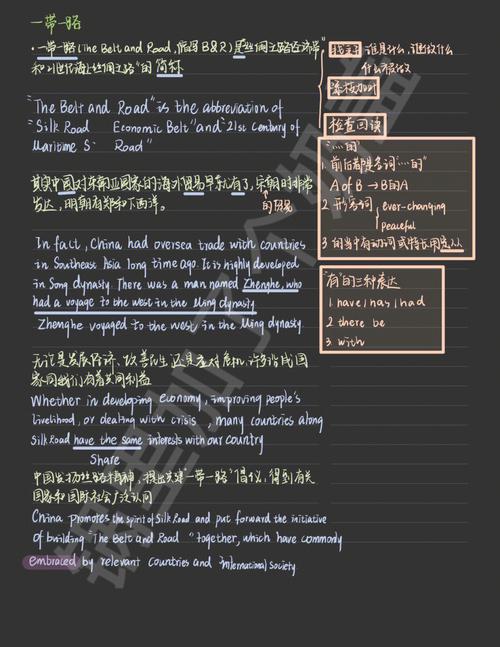 一带一路
·一带一路(The Belt and Road, 缩写B&R)是丝绸之路经济带
和21世纪海上丝绸之路"的简称
"The Belt and Road" is the abbreviation of
"Silk Road Economic Belt" and "21st century of
Maritime S Road"
其实中国对东南亚国家的海外贸易早就有了,宋朝时非常
的贸易
发达,明朝有郑和下西洋。
In fact, China had oversea trade with countries
in Southeast Asia long time ago. It is highly developed
in Song dynasty. There was a man named Zhenghe, who
had a voyage to the west in the Ming dynasty
Zhenghe voyaged to the west in the Ming dynasty.
无论是发展经济、改善民生还是应对危机,许多沿线国
家同我们有着共同利益
Whether in developing economy, improving people's
livelihood, or dealing with crisis, many countries along
Silk Road have the same interests with our country
Share
中国发扬丝路精神,提出共建"一带一路"倡议,得到有关
国家和国际社会广泛认同
China promotes the spirit of Silk Road and put forward the initiative
of building "The Belt and Road" together, which have commonly
embraced by relevant Countries and International Society
找主干 谁是什么,谁做什么
什么被做
检查回读
"……的"
1. 前后都是名词"……的"
A of B → B的A
2 形容词 ever-changing
peaceful
"有"的三种表达
1. have / has / had
2 there be
3. with